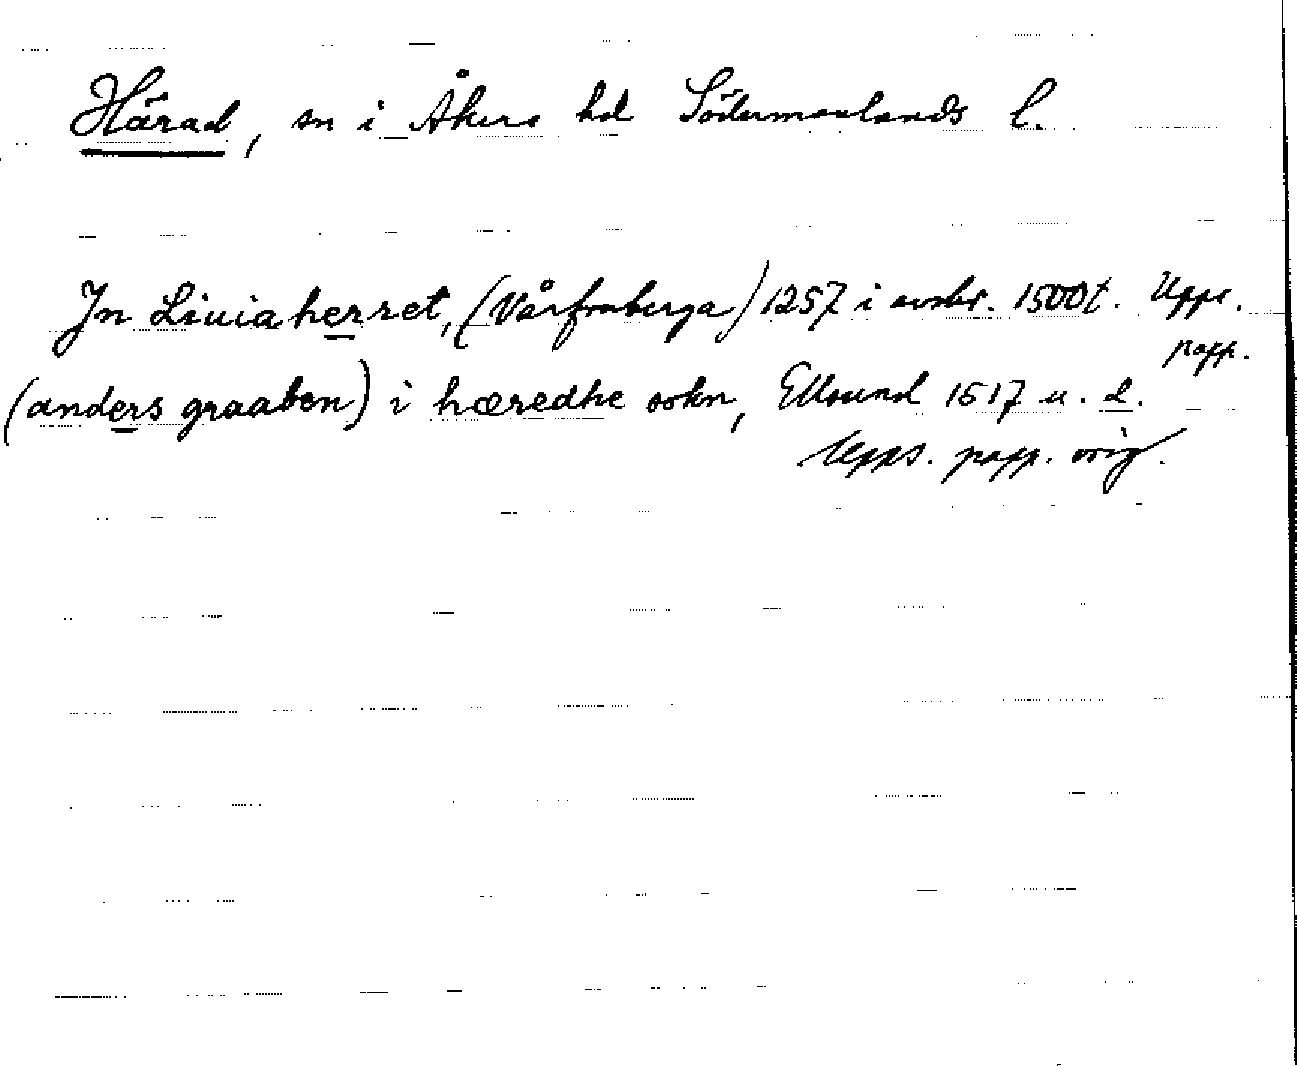 Härad, sn i Åkers hd Södermanlands l.
In Liuiaherret, (Vårfruberga) 1257 i avskr. 1500t. Upps.
papp.
(anders graaben) i hæredhe sokn, Ellsund 1517 u. d.
Upps. papp. orig.